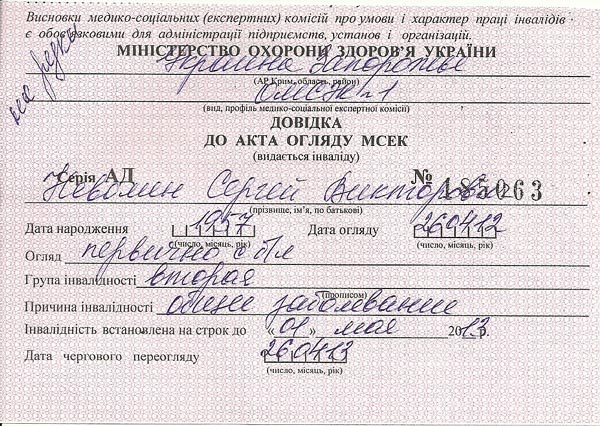 Висновки медико-соціальних (експертних) комісій про умови і характер праці інвалідів
є обов'язковими для адміністрації підприємств, установ і організацій.
МІНІСТЕРСТВО ОХОРОНИ ЗДОРОВ'Я УКРАЇНИ
Украина Запорожье
(АР Крим, область, район)
№1
(вид, профіль медико-соціальної експертної комісії)
ДОВІДКА
ДО АКТА ОГЛЯДУ МСЕК
(видається інваліду)
Серія АД № 185063
Сергей Викторович
(прізвище, ім'я, по батькові)
Дата народження 1957 Дата огляду 260412
(число, місяць, рік) (число, місяць, рік)
Огляд первично с бл
Група інвалідності вторая
(прописом)
Причина інвалідності общее заболевание
Інвалідність встановлена на строк до « 01 » мая 2013 р.
Дата чергового переогляду 260413
(число, місяць, рік)